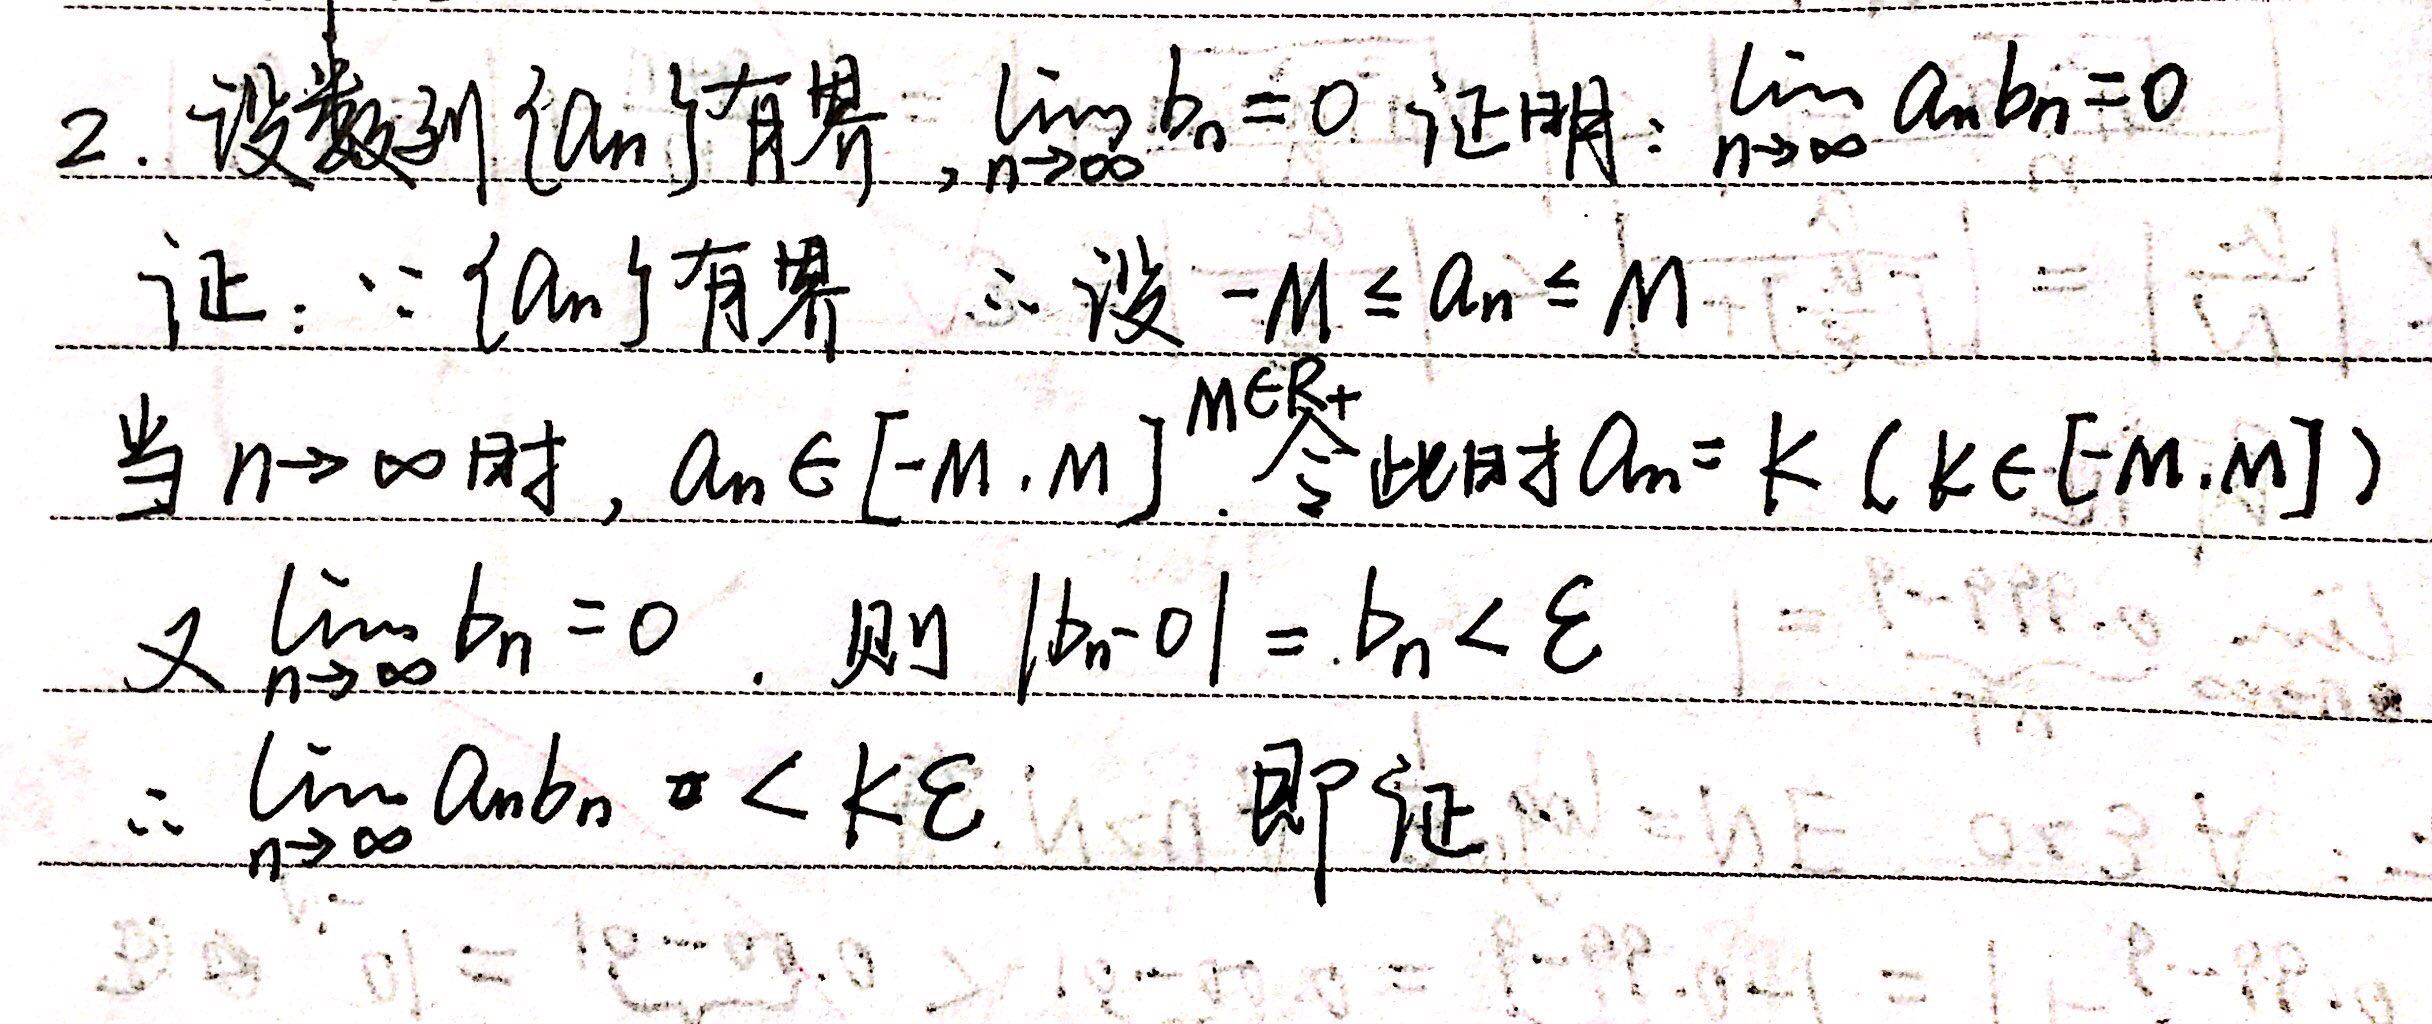 2. 设数列{an}有界, lim n→∞ bn=0 证明: lim n→∞ anbn=0
证: ∵{an}有界 ∴设 -M≤an≤M
M∈R+
当n→∞时, an∈[-M.M]. 令此时an=K (K∈[-M.M])
又 lim n→∞ bn=0. 则 |bn-0|=bn<ε
∴ lim n→∞ anbn <Kε 即证.